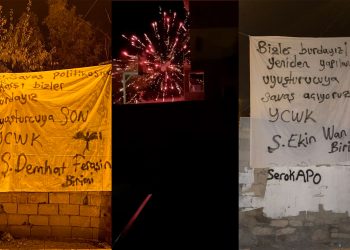 Savaş politikasına
karşı bizler
burdayız
uyuşturucuya SON
YCWK
Ş. Demhat
Birimi
Bizler burdayız!
yeniden
uyuşturucuya
savaş açıyoruz
YCWK
Ş. Ekin Wan
Birimi
SerokAPO